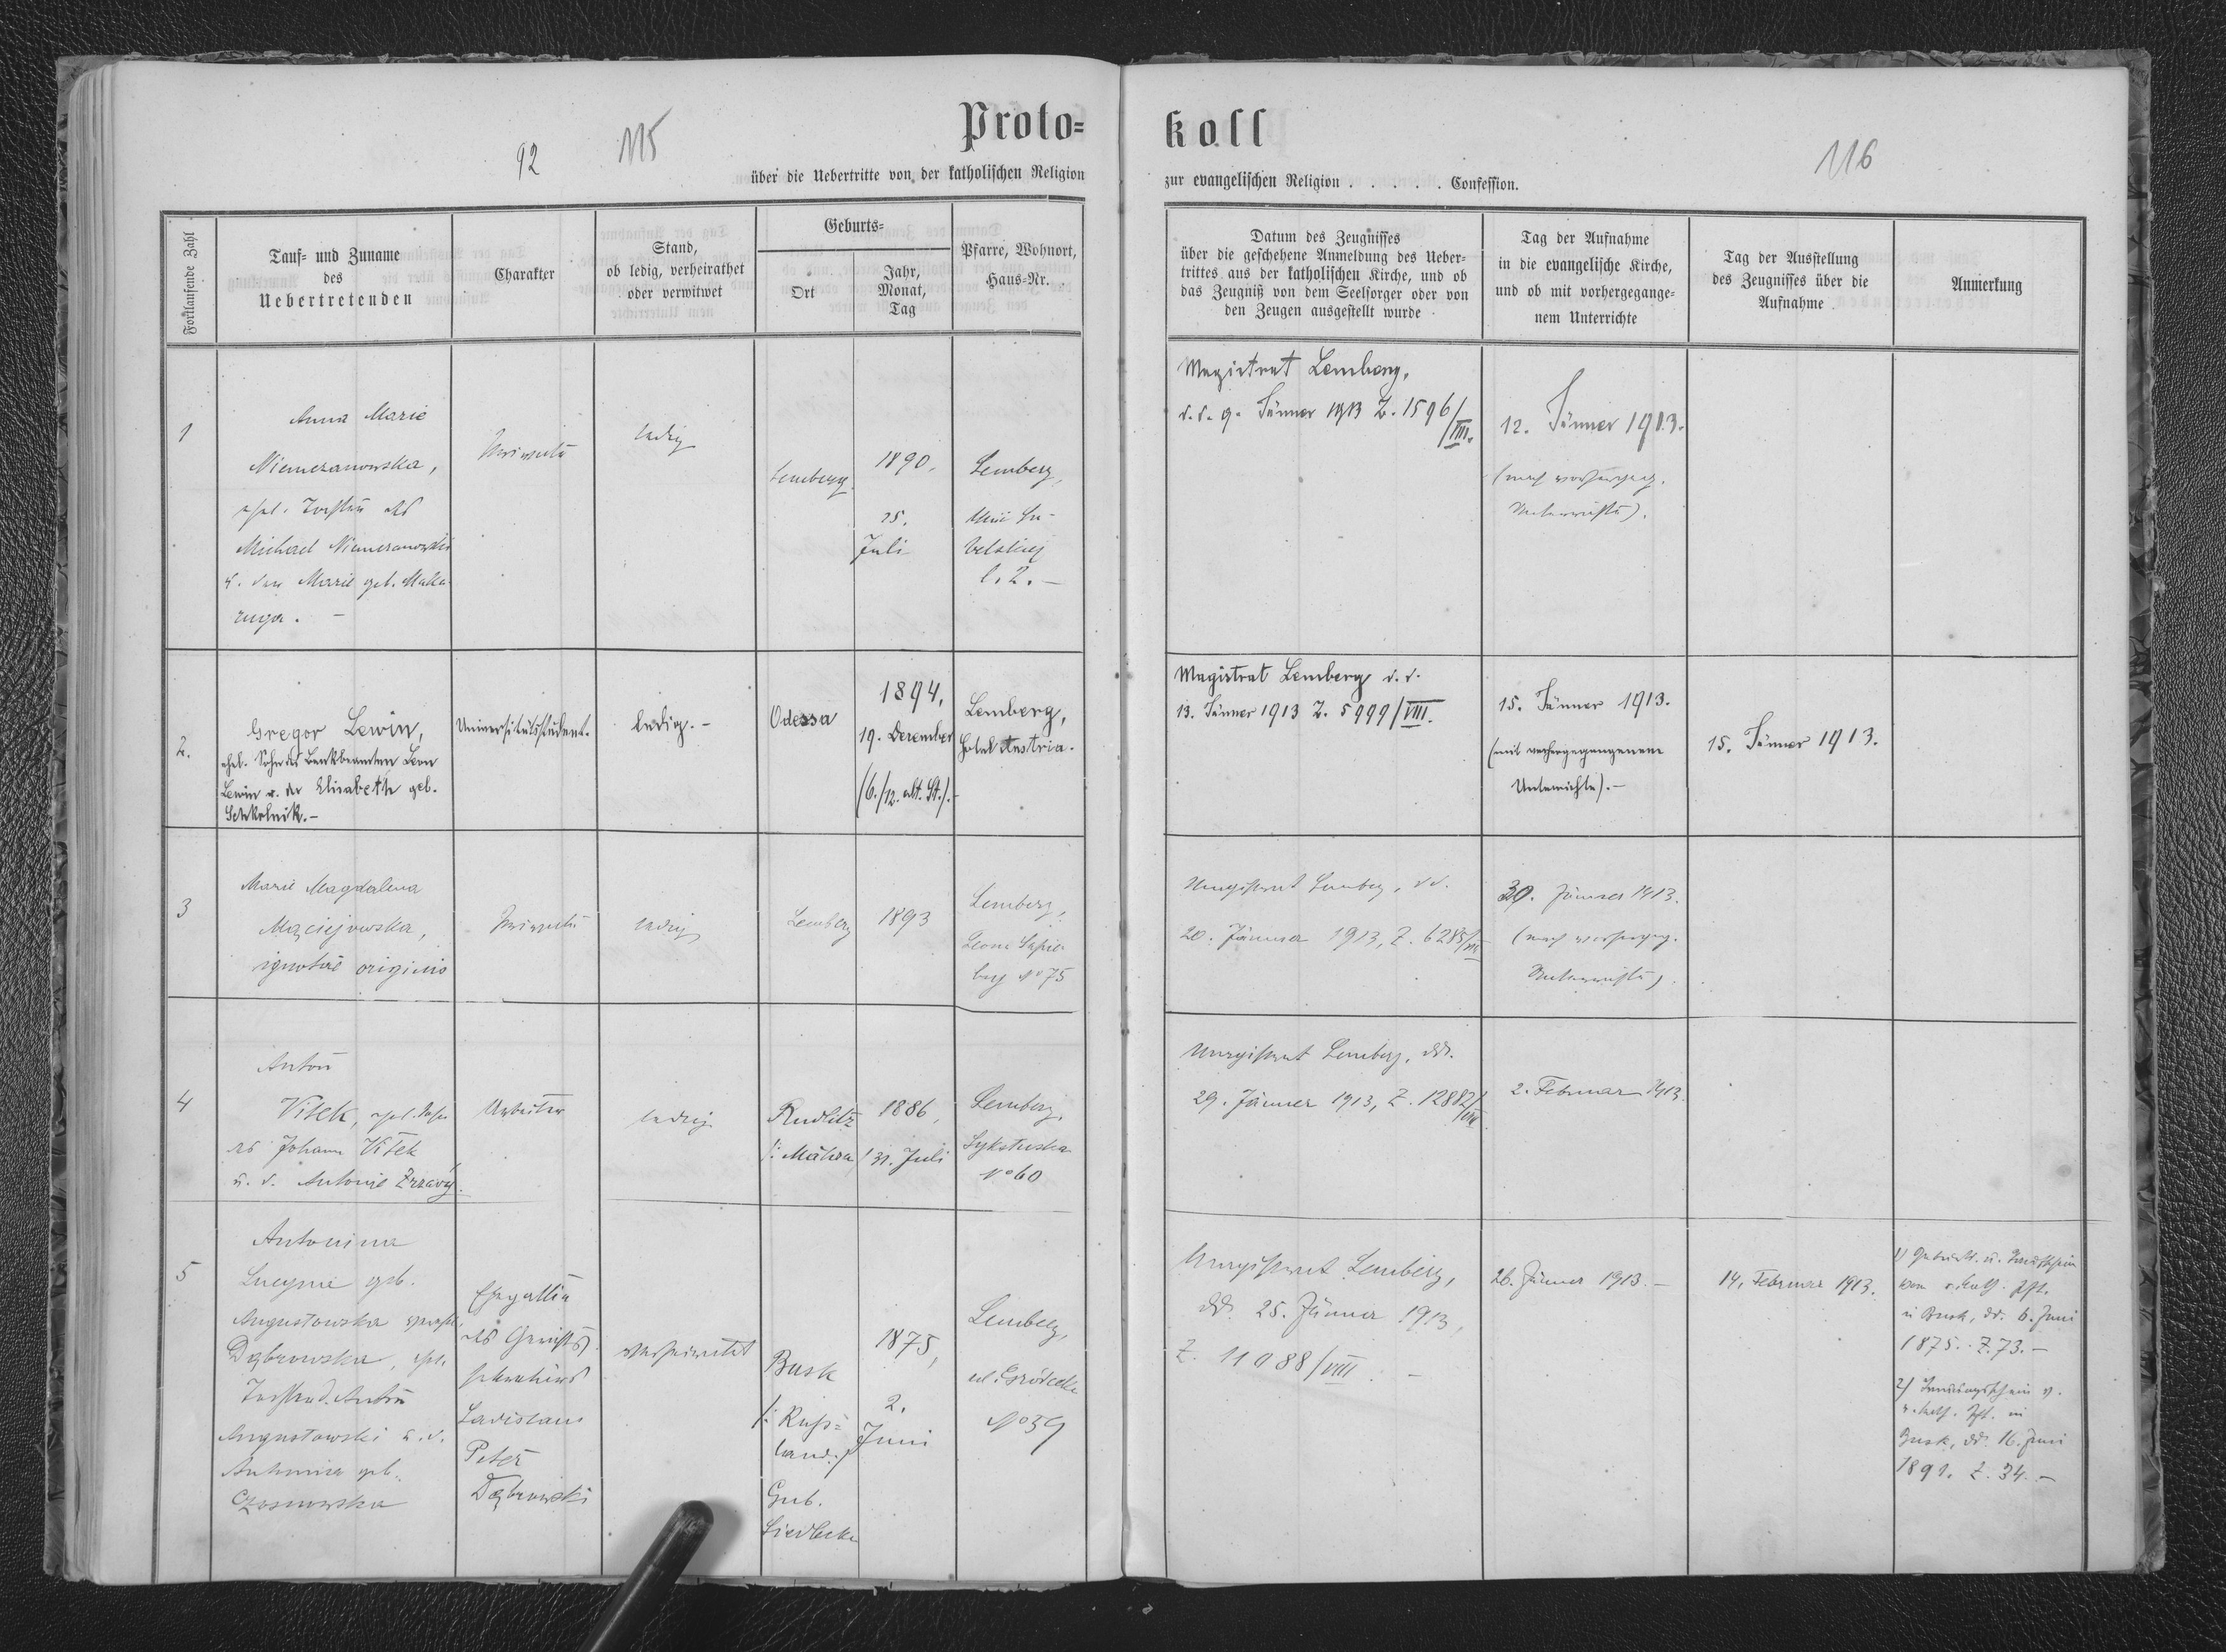 92
115
116
Proto=
koll
über die Uebertritte von der katholischen Religion
zur evangelischen Religion . . . . . Confession.
Fortlaufende Zahl
Tauf= und Zuname
des
Uebertretenden
Charakter
Stand,
ob ledig, verheirathet
oder verwitwet
Geburts=
Ort
Jahr,
Monat,
Tag
Pfarre, Wohnort,
Haus=Nr.
Datum des Zeugnisses
über die geschehene Anmeldung des Ueber=
trittes aus der katholischen Kirche, und ob
das Zeugniß von dem Seelsorger oder von
den Zeugen ausgestellt wurde
Tag der Aufnahme
in die evangelische Kirche,
und ob mit vorhergegange=
nem Unterrichte
Tag der Ausstellung
des Zeugnisses über die
Aufnahme
Anmerkung
1
Anna Marie
Niemeranowska,
ehel. Tochter des
Michael Niemeranowski
u. der Marie geb. Maka
ruga. –
Private
ledig
Lemberg
1890,
25.
Juli
Lemberg,
l. 2. –
Magistrat Lemberg,
d. d. 9. Jänner 1913 Z. 1596/VIII.
12. Jänner 1913.
(nach vorhergeg.
Unterrichte).
2.
Gregor Lewin,
ehel. Sohn des Bankbeamten Leon
Lewin u. der Elisabeth geb.
Schkolnik. –
Universitätsstudent.
ledig. –
Odessa
1894,
19. Dezember
(6./12. alt. St.). –
Lemberg,
Hotel Austria.
Magistrat Lemberg d. d.
13. Jänner 1913 Z. 5999/VIII.
15. Jänner 1913.
(mit vorhergegangenem
Unterrichte). –
15. Jänner 1913.
3
Marie Magdalena
Maciejowska,
ignotae originis
Private
ledig
Lemberg
1893
Lemberg,
Leona Sapie
hy No 75
Magistrat Lemberg, d d.
20. Jänner 1913, Z. 6285/VIII
30. Jänner 1913.
(nach vorhergeg.
Unterrichte).
4
Anton
Vitek, ehel. Sohn
des Johann Vitek
u. d. Antonie Zrzavý.
Arbeiter
ledig
Rudlitz
/: Mähren /
1886,
31. Juli
Lemberg,
Sykstuska
No 60
Magistrat Lemberg, dd.
29. Jänner 1913, Z. 12882/VIII
2. Februar 1913.
5
Antonina
Lucyna geb.
Augustowska verehl.
Dąbrowska, ehel.
Tochter d. Anton
Augustowski u. d.
Antonina geb.
Czosnowska
Ehegattin
des Gerichts
sekretärs
Ladislaus
Peter
Dąbrowski
verheiratet
Busk
/: Russ=
land :/
Gub.
Siedlecka
1875,
2.
Juni
Lemberg,
ul. Gródecka
No 59
Magistrat Lemberg,
dd. 25. Jänner 1913,
Z. 11088/VIII. –
26. Jänner 1913. –
14. Februar 1913.
1) Geburts. u. Taufschein
vom r. kath. Pft.
in Busk, dd. 6. Juni
1875. Z. 73. –
2) Trauungsschein v.
r. kath. Pft. in
Busk, dd. 16. Juni
1891. Z. 34. –